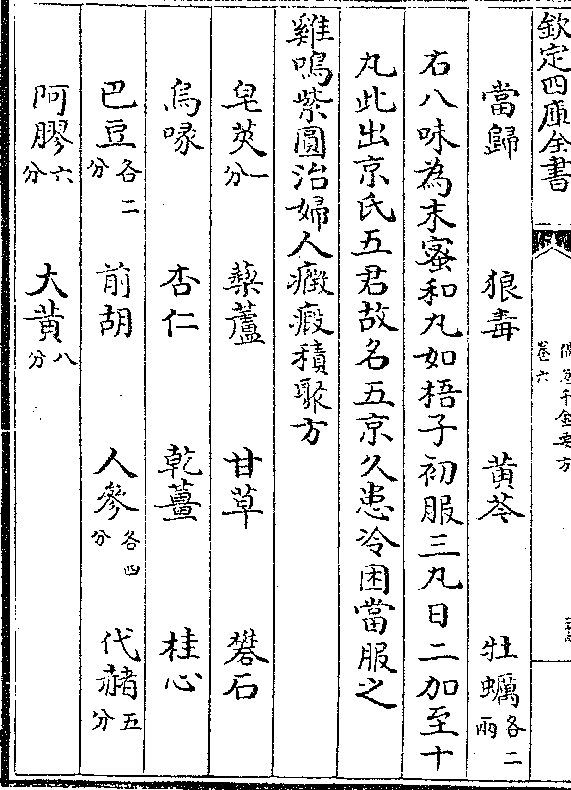 欽定四庫全書
備急千金要方
卷六
當歸 狼毒 黄芩 牡蠣各二兩
右八味為末蜜和丸如梧子初服三丸日二加至十
丸此出京氏五君故名五京久患冷困當服之
雞鳴紫圓治婦人癥瘕積聚方
皂莢一分 藜蘆 甘草 礬石
烏喙 杏仁 乾薑 桂心
巴豆各二分 前胡 人參各四分 代赭五分
阿膠六分 大黄八分